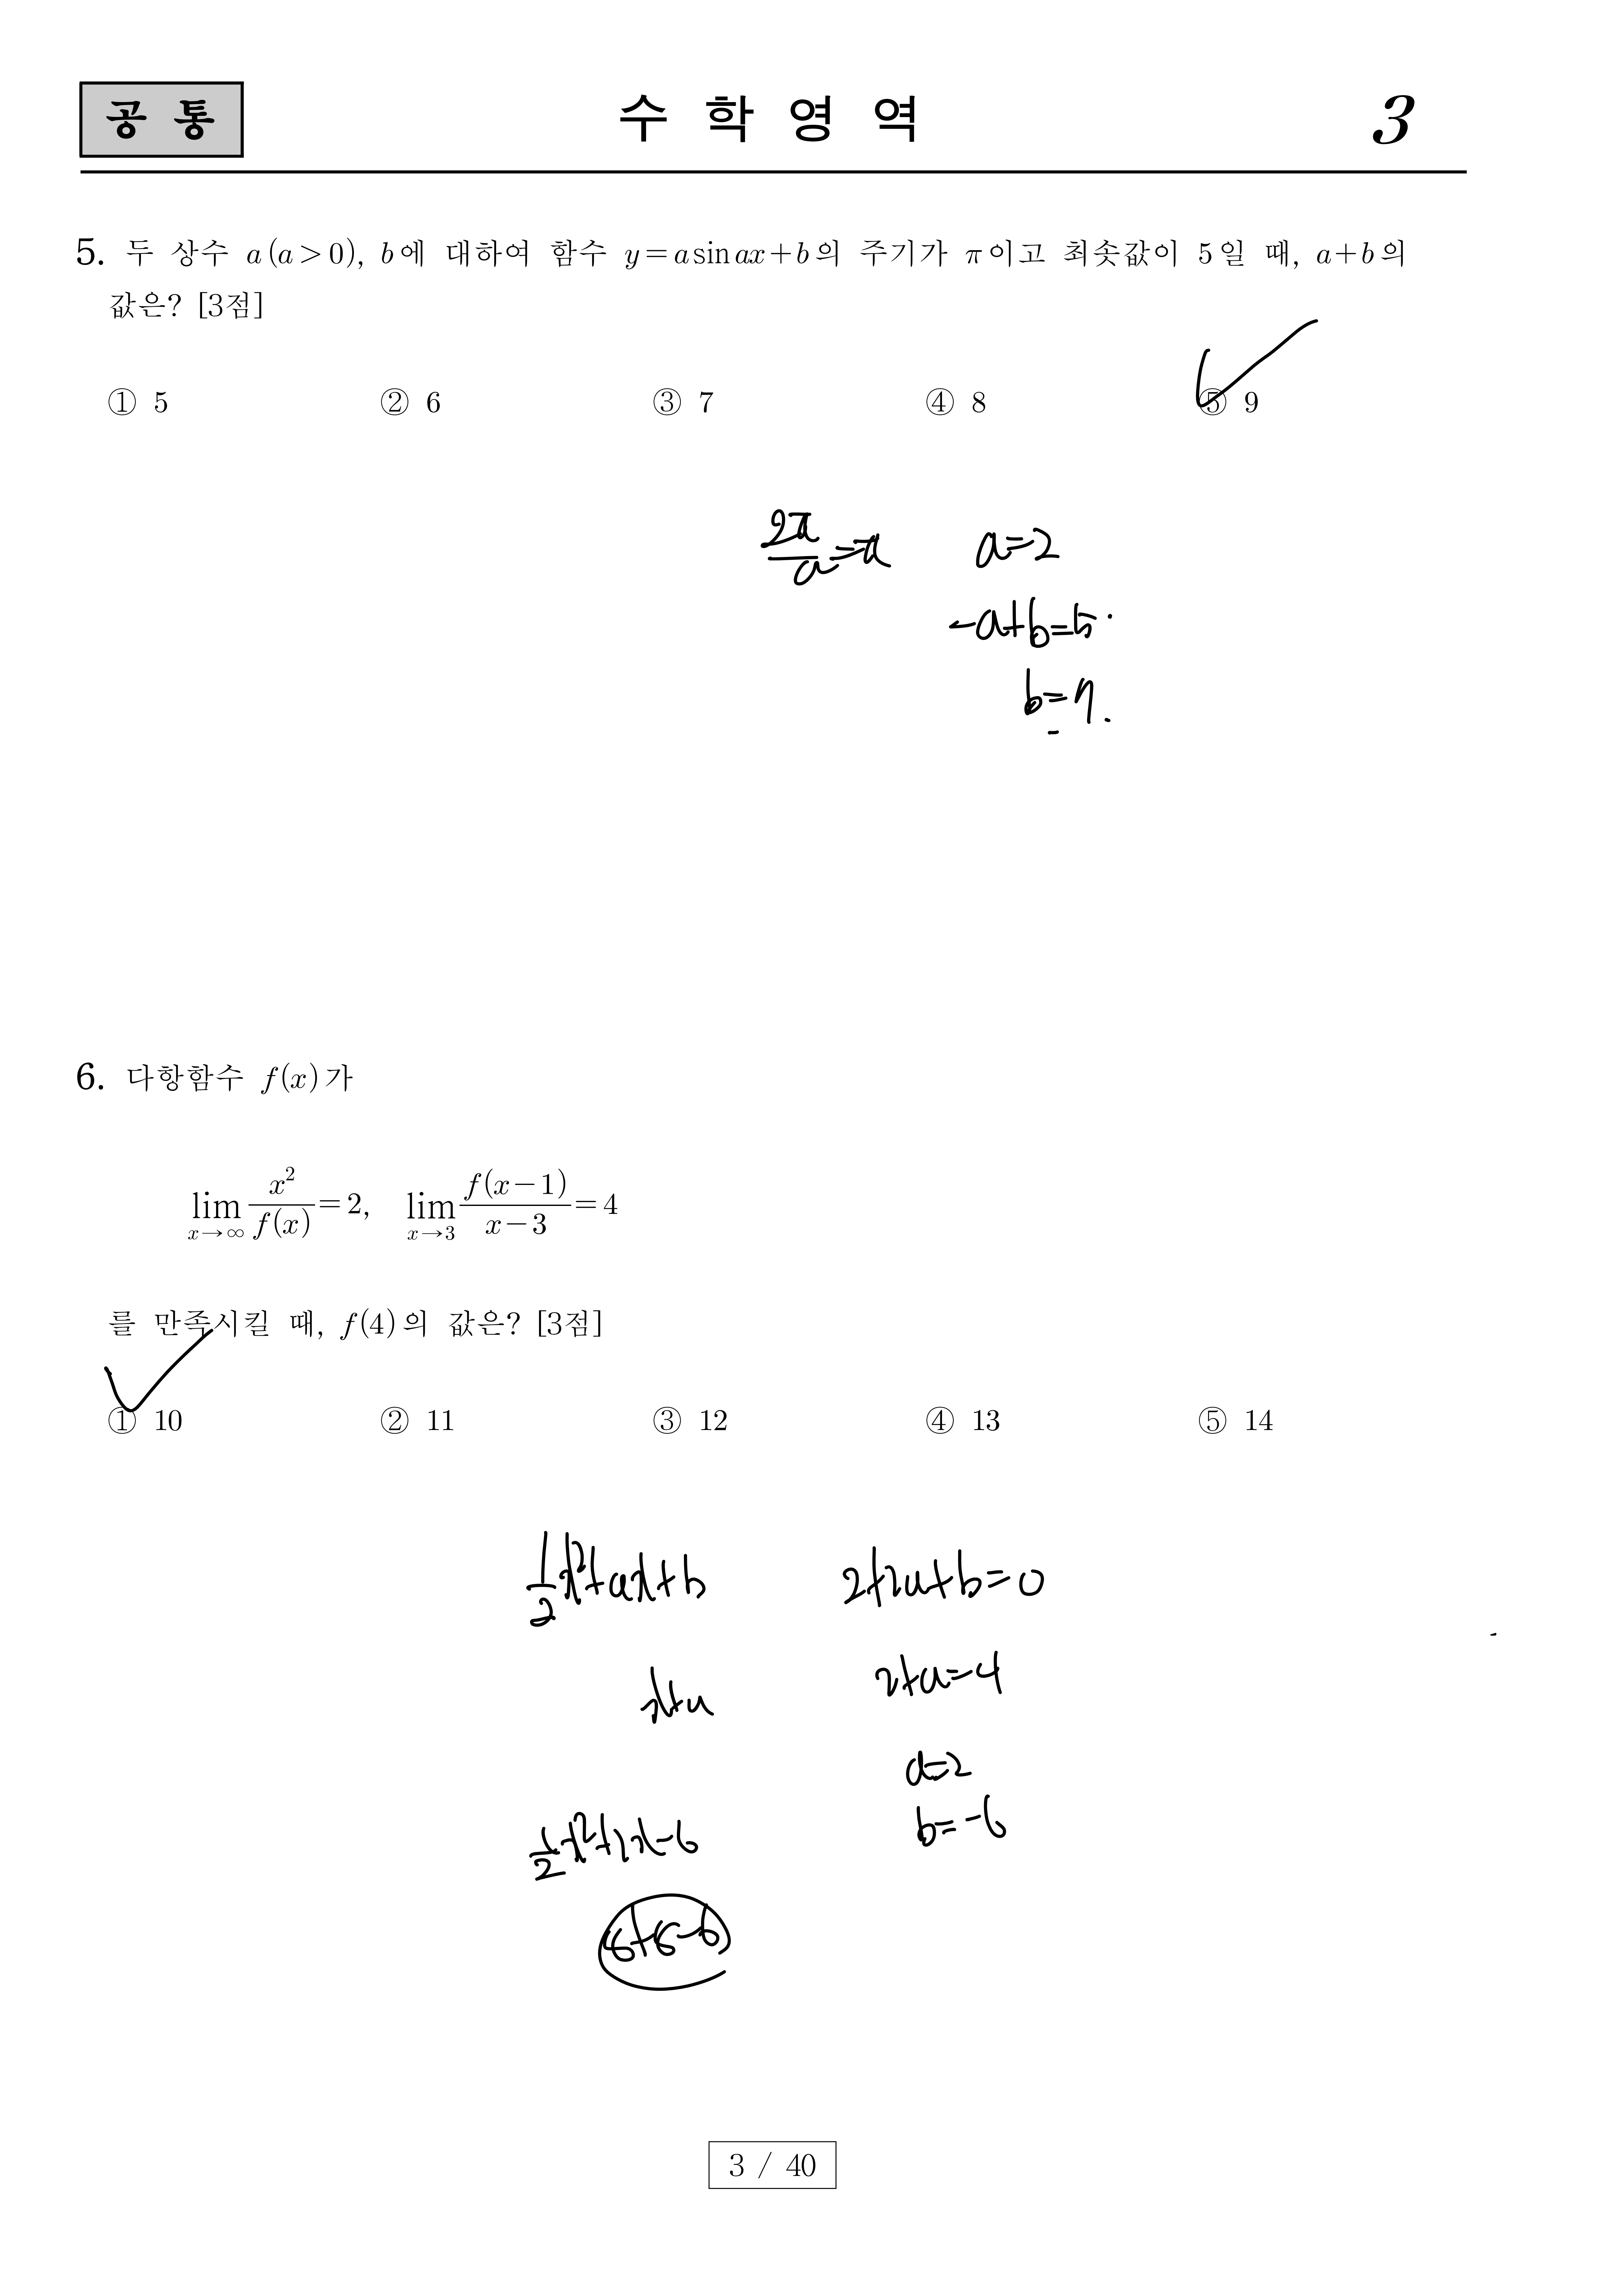 공 통
수 학 영 역
3
5. 두 상수 a(a>0), b에 대하여 함수 y=a sin ax+b의 주기가 π이고 최솟값이 5일 때, a+b의
값은? [3점]
① 5 ② 6 ③ 7 ④ 8 ⑤ 9
2π/a=π a=2
-a+b=5.
b=7.
6. 다항함수 f(x)가
lim_{x→∞} x²/f(x)=2, lim_{x→3} f(x-1)/(x-3)=4
를 만족시킬 때, f(4)의 값은? [3점]
① 10 ② 11 ③ 12 ④ 13 ⑤ 14
1/2x²+ax+b 2+2a+b=0
x+a 2+a=4
a=2
b=-6
1/2x²+2x-6
8+8-6
3 / 40